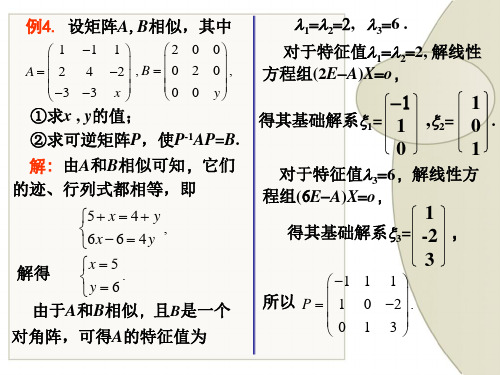 例4. 设矩阵A, B相似，其中
A = ( 1 −1 1 ; 2 4 −2 ; −3 −3 x ), B = ( 2 0 0 ; 0 2 0 ; 0 0 y ),
①求x , y的值；
②求可逆矩阵P，使P⁻¹AP=B.
解：由A和B相似可知，它们
的迹、行列式都相等，即
{ 5 + x = 4 + y ; 6x − 6 = 4y ,
解得 { x = 5 ; y = 6 .
由于A和B相似，且B是一个
对角阵，可得A的特征值为
λ₁=λ₂=2, λ₃=6 .
对于特征值λ₁=λ₂=2, 解线性
方程组(2E−A)X=o，
得其基础解系ξ₁= ( −1 ; 1 ; 0 ) ,ξ₂= ( 1 ; 0 ; 1 ) .
对于特征值λ₃=6，解线性方
程组(6E−A)X=o，
得其基础解系ξ₃= ( 1 ; -2 ; 3 ) ，
所以 P = ( −1 1 1 ; 1 0 −2 ; 0 1 3 ).